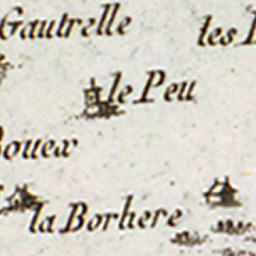 Gautrelle
les
le Peu
Bouex
la Borhere